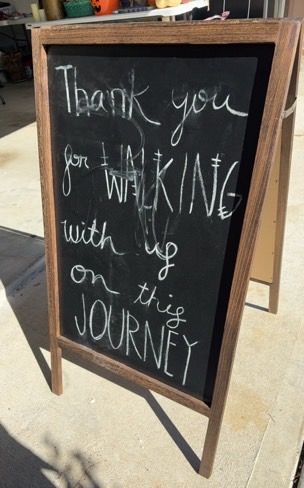 Thank you
for WALKING
with us
on this
JOURNEY